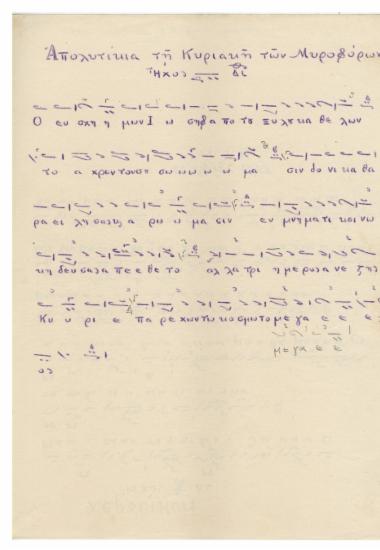 Ἀπολυτίκια τῇ Κυριακῇ τῶν Μυροφόρων
Ἦχος Δι
Ο ευ σχη η μων Ι ω σηφ α πο του ξυ λου κα θε λων
το α χραντον σου σω ω ω ω ω μα σιν δο νι κα θα
ρα ει λη σας α ρω ω μα σιν εν μνη μα τι και νω
κη δευ σας α πε ε θε το αλ λα τρι η με ρος α νε ζης
Κυ υ ρι ε πα ρε χων τω κο σμω το με γα ε ε ε
με γα ε ε
ος